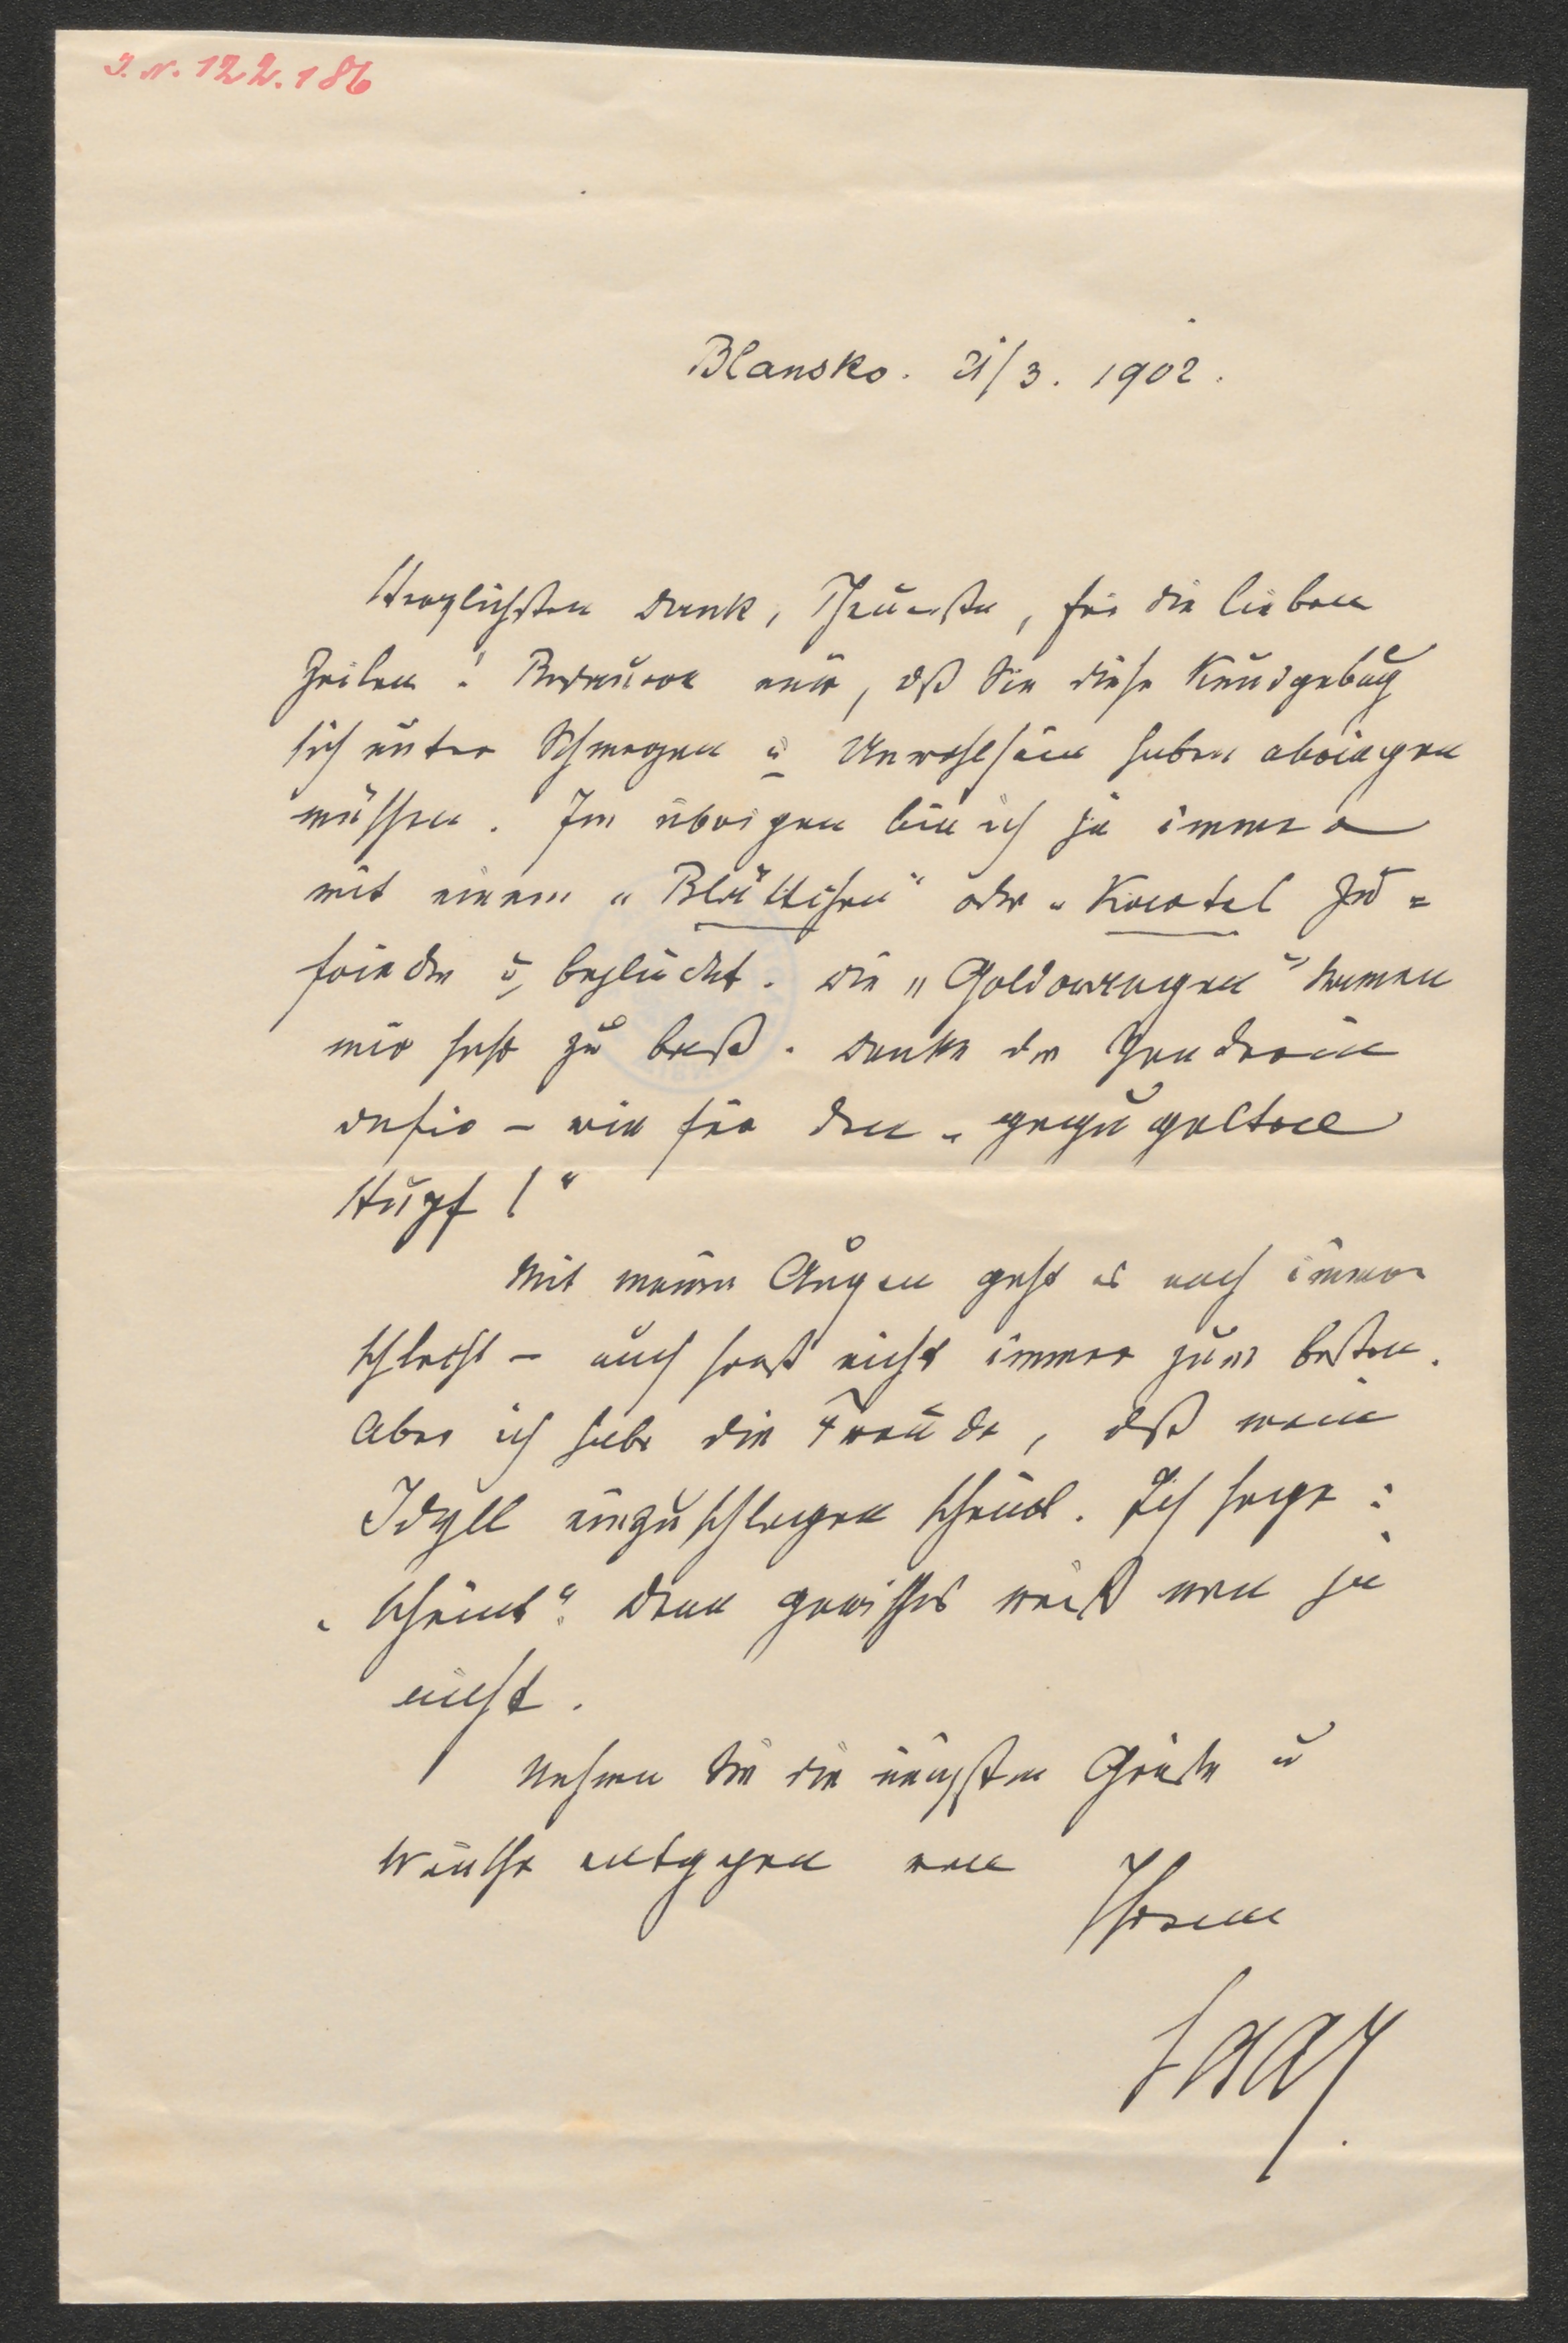 I. N. 122.186
Blansko. 21/3. 1902.
Herzlichsten Dank, Theuerste, für die lieben
Zeilen! Bedauere nur, dß Sie diese Kundgebung
sich unter Schmerzen u Unwohlsein haben abringen
müssen. Im übrigen bin ich ja immer
mit einem „Blättchen" oder „Kartel zu=
frieden u beglückt. Die „Goldorangen" kamen
mir sehr zu paß. Danke der Spenderin
dafür – wie für den „
Hupf!"
Mit meinen Augen geht es noch immer
schlecht – auch sonst nicht immer zum besten.
Aber ich habe die Freude, dß mein
Idyll einzuschlagen scheint. Ich sage:
„scheint" denn gewisses weiß man ja
nicht.
Nehmen Sie die innigsten Grüße u
Wünsche entgegen von
Ihrem
Saar.